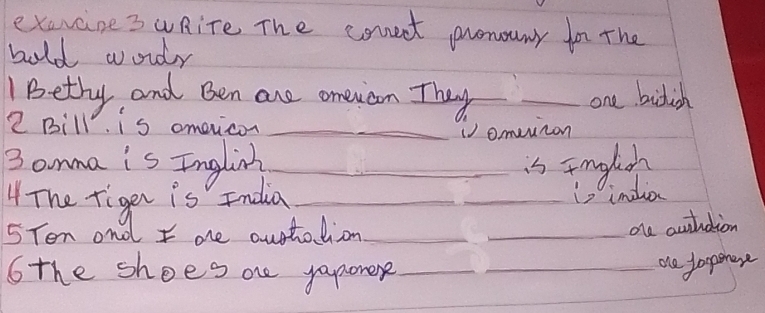 exercise 3 WRiTe The correct pronouns for The
bold words
1 Bethy and Ben are omerican They ______ are british
2 Bill. is omerican ______ is omerican
3 anna is Inglish ______ is Inglish
4 The tiger is India ______ is india
5 Ton and I are austhalian ______ are austhalian
6 the shoes are yaponese ______ are yaponese